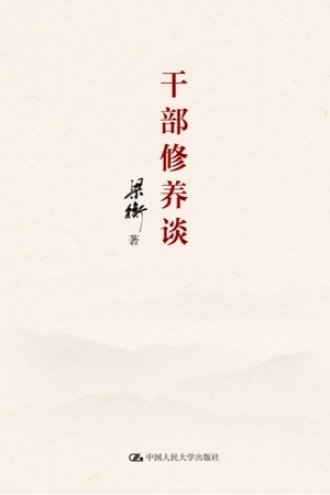 干部修养谈
梁衡
著
中国人民大学出版社